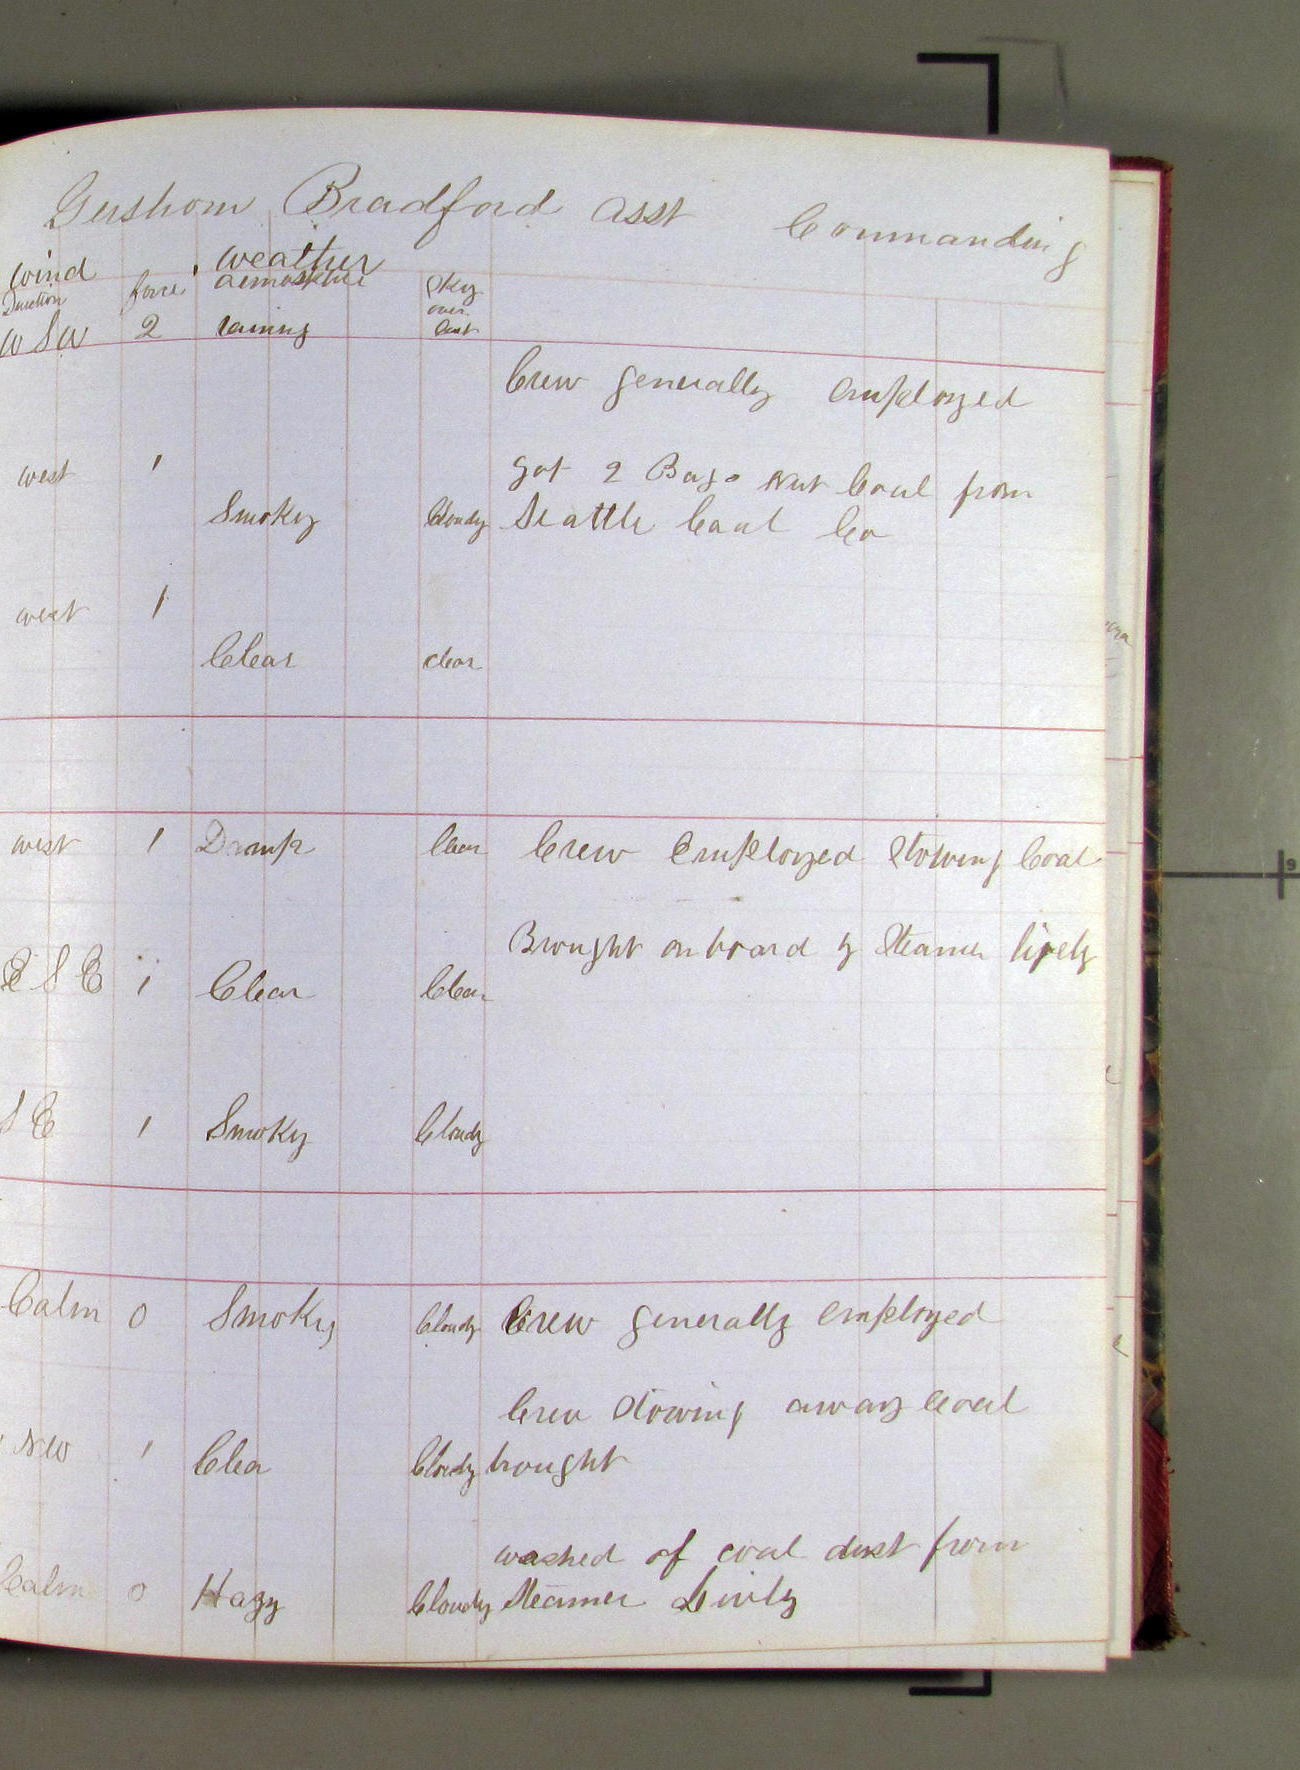 Gershom Bradford Asst Commanding
wind weather
Direction force atmosphere sky
WSW 2 raining over cast
Crew generally employed
west 1 got 2 Bags nut Coal from
Smoky Cloudy Seattle Coal Co
west 1
Clear clear
west 1 Damp Clear Crew Employed Stowing Coal
Brought on board by Steamer lively
ESE 1 Clear Clear
SE 1 Smoky Cloudy
Calm 0 Smoky Cloudy Crew generally employed
Crew Stowing away Coal
NW 1 Clea Cloudy brought
washed of coal dust from
Calm 0 Hazy Cloudy Steamer Lively